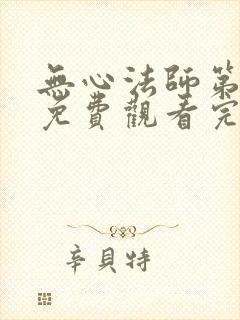 無心法師第
免費觀看完
辛貝特